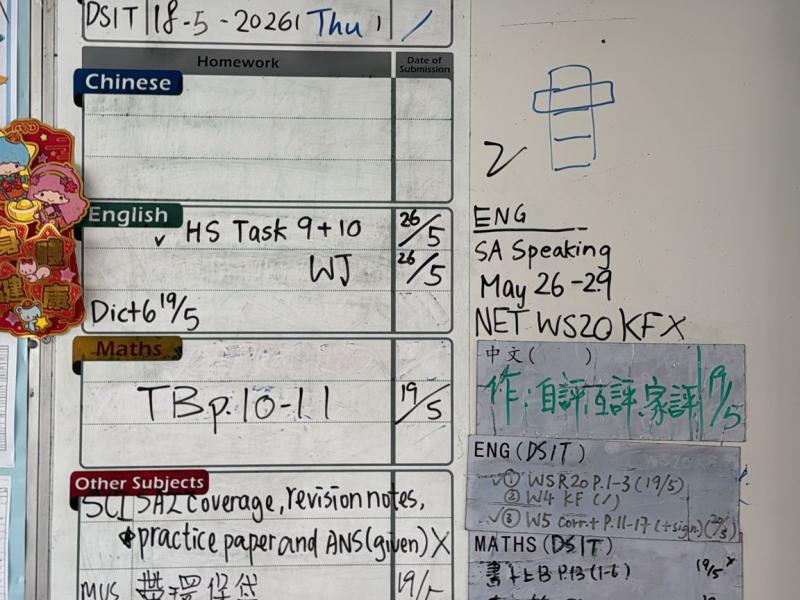 DSIT 18-5-2026 Thu
Homework
Date of Submission
Chinese
English
HS Task 9+10 26/5
WJ 26/5
Dict 6 19/5
Maths
TB p.10-11 19/5
Other Subjects
SCI SA2 Coverage, revision notes,
practice paper and ANS (given) X
MUS
ENG
SA Speaking
May 26-29
NET WS20 KF X
中文( )
作：自評互評家評 19/5
ENG (DSIT)
① WSR20 P.1-3 (19/5)
② W4 KF (/)
③ W5 corr.+ P.11-17 (+sign.) (20/5)
MATHS (DSIT)
書 P.13 (1-6) 19/5
身體健康